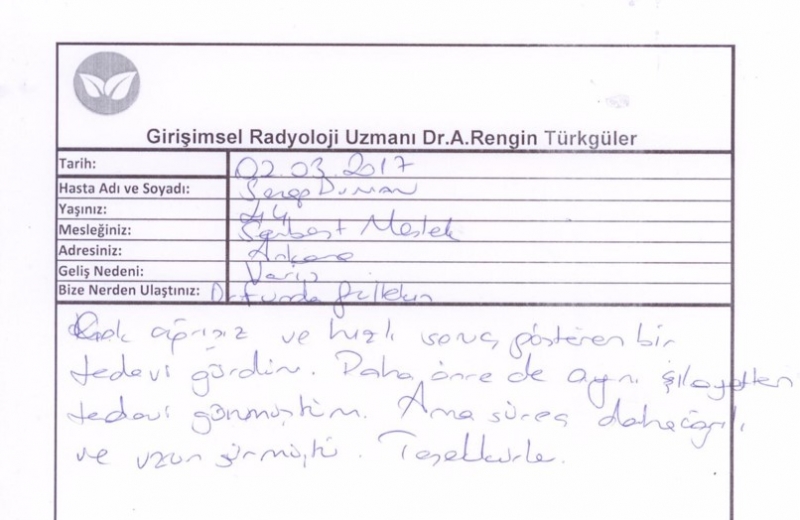 Girişimsel Radyoloji Uzmanı Dr.A.Rengin Türkgüler
Tarih: 02.03.2017
Hasta Adı ve Soyadı: Serap Duman
Yaşınız: 44
Mesleğiniz: Serbest Meslek
Adresiniz: Ankara
Geliş Nedeni: Varis
Bize Nerden Ulaştınız: Dr. Funda
ağrısız ve hızlı sonuç gösteren bir
tedavi gördüm. Daha önce de aynı şikayetten
tedavi görmüştüm. Ama süreç daha ağrılı
ve uzun sürmüştü. Teşekkürler.